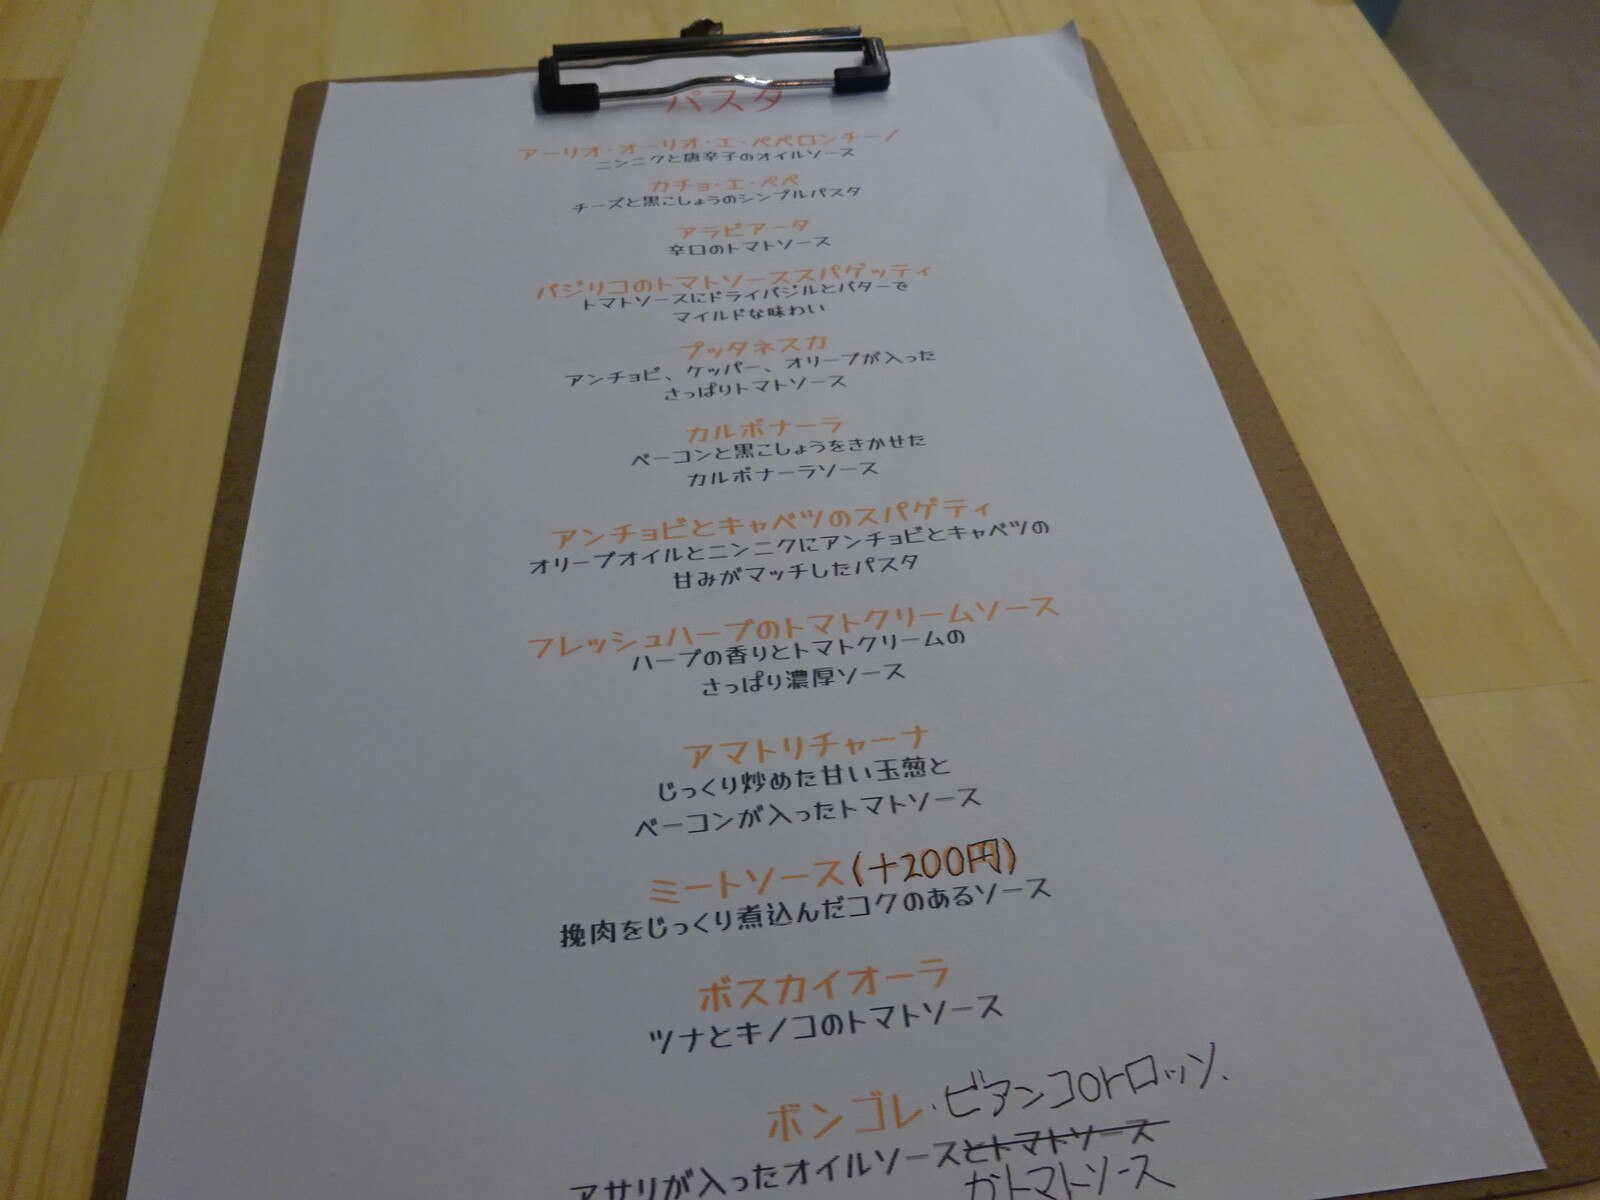 パスタ
アーリオ・オーリオ・エ・ペペロンチーノ
ニンニクと唐辛子のオイルソース
カチョ・エ・ペペ
チーズと黒こしょうのシンプルパスタ
アラビアータ
辛口のトマトソース
バジリコのトマトソーススパゲッティ
トマトソースにドライバジルとバターで
マイルドな味わい
プッタネスカ
アンチョビ、ケッパー、オリーブが入った
さっぱりトマトソース
カルボナーラ
ベーコンと黒こしょうをきかせた
カルボナーラソース
アンチョビとキャベツのスパゲティ
オリーブオイルとニンニクにアンチョビとキャベツの
甘みがマッチしたパスタ
フレッシュハーブのトマトクリームソース
ハーブの香りとトマトクリームの
さっぱり濃厚ソース
アマトリチャーナ
じっくり炒めた甘い玉葱と
ベーコンが入ったトマトソース
ミートソース(+200円)
挽肉をじっくり煮込んだコクのあるソース
ボスカイオーラ
ツナとキノコのトマトソース
ボンゴレ・ビアンコorロッソ、
アサリが入ったオイルソースとトマトソース
かトマトソース